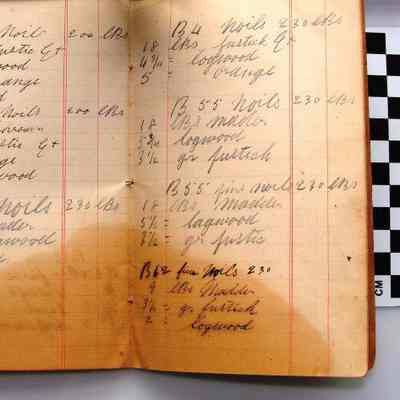 Noil 200 lbs
ustic Gt
wood
range
Noils 200 lbs
stic Gt
ge
wood
Noils 230 lbs
dder
gwood
B4 Noils 230 lbs
18 lbs fustick Gt
4 3/4 = logwood
5 = orange
B 55 Noils 230 lbs
18 lbs madder
logwood
3 1/2 gr fustick
B55 fine noils 230 lbs
18 lbs Madder
5 1/2 = logwood
3 1/2 = gr fustic
B62 fine Noils 230
9 lbs Madder
3 1/2 = gr fustick
2 = logwood
CM